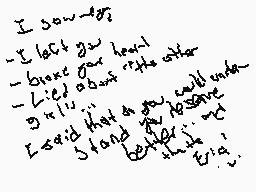 I saw
- I left you
- broke your heart
- Lied about the other
girls...
I said that so you would under-
stand you deserve
better... and
thats
Eric!